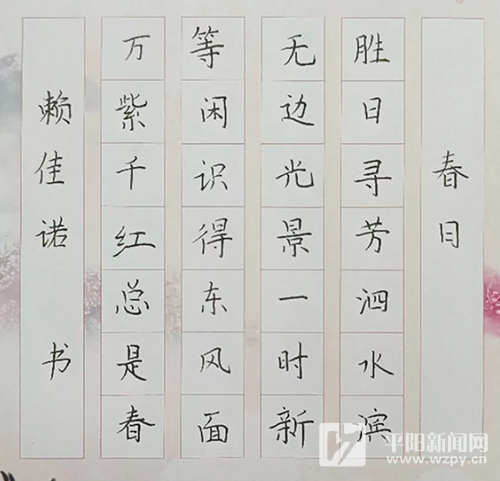 春日
胜日寻芳泗水滨
无边光景一时新
等闲识得东风面
万紫千红总是春
赖佳诺 书
平阳新闻网
www.wzpy.cn